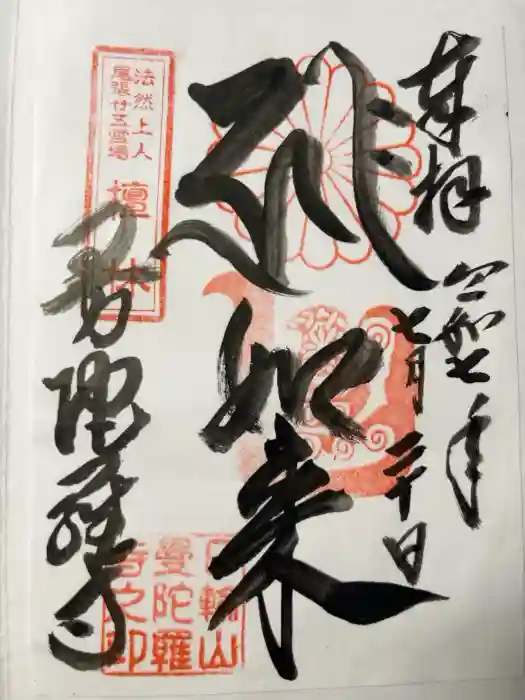 奉拝
令和七年
七月二十日
如来
法然上人
尾張廿五霊場
檀林
曼陀羅寺
日輪山
曼陀羅
寺之印